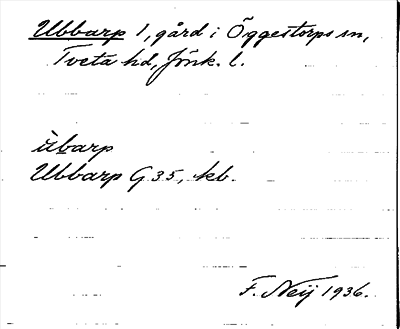 Ubbarp 1, gård i Öggestorps sn,
Tveta hd, Jönk. l.
ùbarp
Ubbarp G 35, kb.
F. Neij 1936.